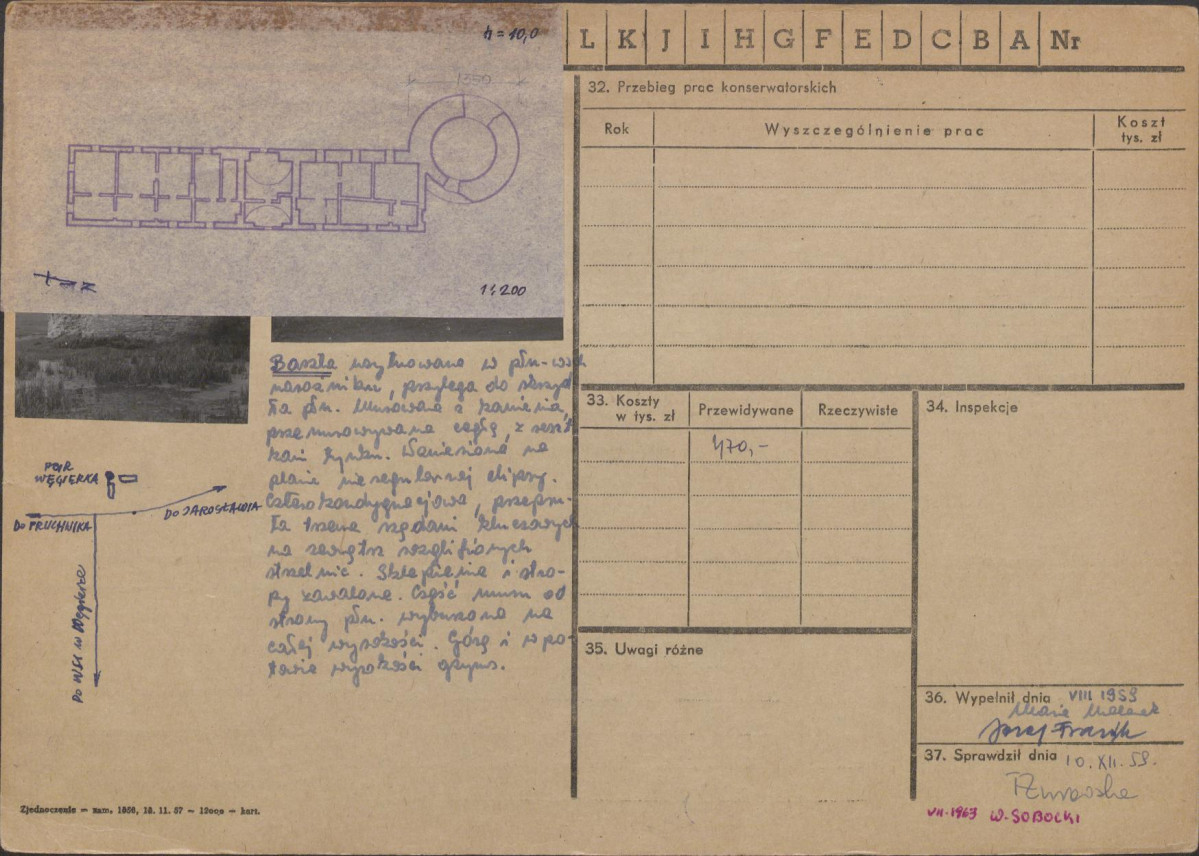 h = 10,0
1350
1:200
L K J I H G F E D C B A Nr
32. Przebieg prac konserwatorskich
Rok
Wyszczególnienie prac
Koszt
tys. zł
Baszta usytuowana w płn-wsch
narożniku, przylega do skrzyd
ła płn. Murowana z kamienia,
przemurowywana cegłą, z reszt
kami tynku. Wzniesiona na
planie nieregularnej elipsy.
Czterokondygnacjowa, przepru-
ta trzema rzędami kluczowych
na zewnątrz rozglifionych
strzelnic. Sklepienia i stro-
py zawalone. Część muru od
strony płn. wyburzona na
całej wysokości. Górą i w po-
łowie wysokości gzyms.
PGR
WĘGIERKA
DO PRUCHNIKA
DO JAROSŁAWIA
DO WSI W Węgierce
33. Koszty
w tys. zł
Przewidywane
Rzeczywiste
470,-
34. Inspekcje
35. Uwagi różne
36. Wypełnił dnia VIII 1959
Józef Frazik
37. Sprawdził dnia 10.XII.59.
VII-1963 W. SOBOCKI
Zjednoczenie — zam. 1656, 18. 11. 57 — 12000 — kart.